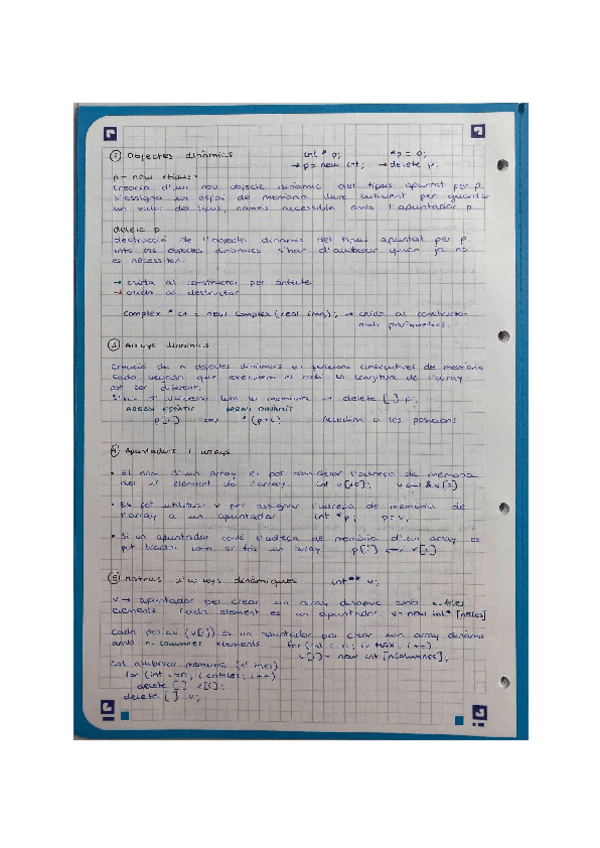 ② Objectes dinàmics int * p; *p = 0;
→ p = new int; → delete p;
p = new <tipus>
Creació d'un nou objecte dinàmic del tipus apuntat per p.
s'assigna un espai de memòria lliure suficient per guardar
un valor del tipus, només accessible amb l'apuntador p
delete p
destrucció de l'objecte dinàmic del tipus apuntat per p.
els objectes dinàmics s'han d'alliberar quan ja no
es necessiten.
→ crida al constructor per defecte
→ crida al destructor
Complex * c1 = new Complex (real, img); → crida al constructor
amb paràmetres.
③ Arrays dinàmics
Creació de n objectes dinàmics en posicions consecutives de memòria
Cada vegada que executem el codi la longitud de l'array
pot ser diferent.
S'ha d'alliberar tota la memòria → delete [ ] p;
ARRAY ESTÀTIC ARRAY DINÀMIC
p[i] <=> *(p+i) a les posicions
④ Apuntadors i arrays
• El nom d'un array es pot considerar l'adreça de memòria
del 1r element de l'array. int v[10]; v <-> &v[0]
• Es pot utilitzar v per assignar l'adreça de memòria de
l'array a un apuntador int *p; p = v;
• Si un apuntador conté l'adreça de memòria d'un array es
pot tractar com si fos un array p[i] <-> v[i]
⑤ Matrius i arrays dinàmiques int** v;
v → apuntador per crear un array dinàmic amb n-files
elements. Cada element és un apuntador. v = new int* [nfiles]
Cada posició (v[i]) és un apuntador per crear un array dinàmic
amb n-columnes elements for (int i = 0; i < MAX; i++)
v[i] = new int [ncolumnes];
Cal alliberar memòria
for (int i = 0; i < nfiles; i++)
delete [ ] v[i];
delete [ ] v;